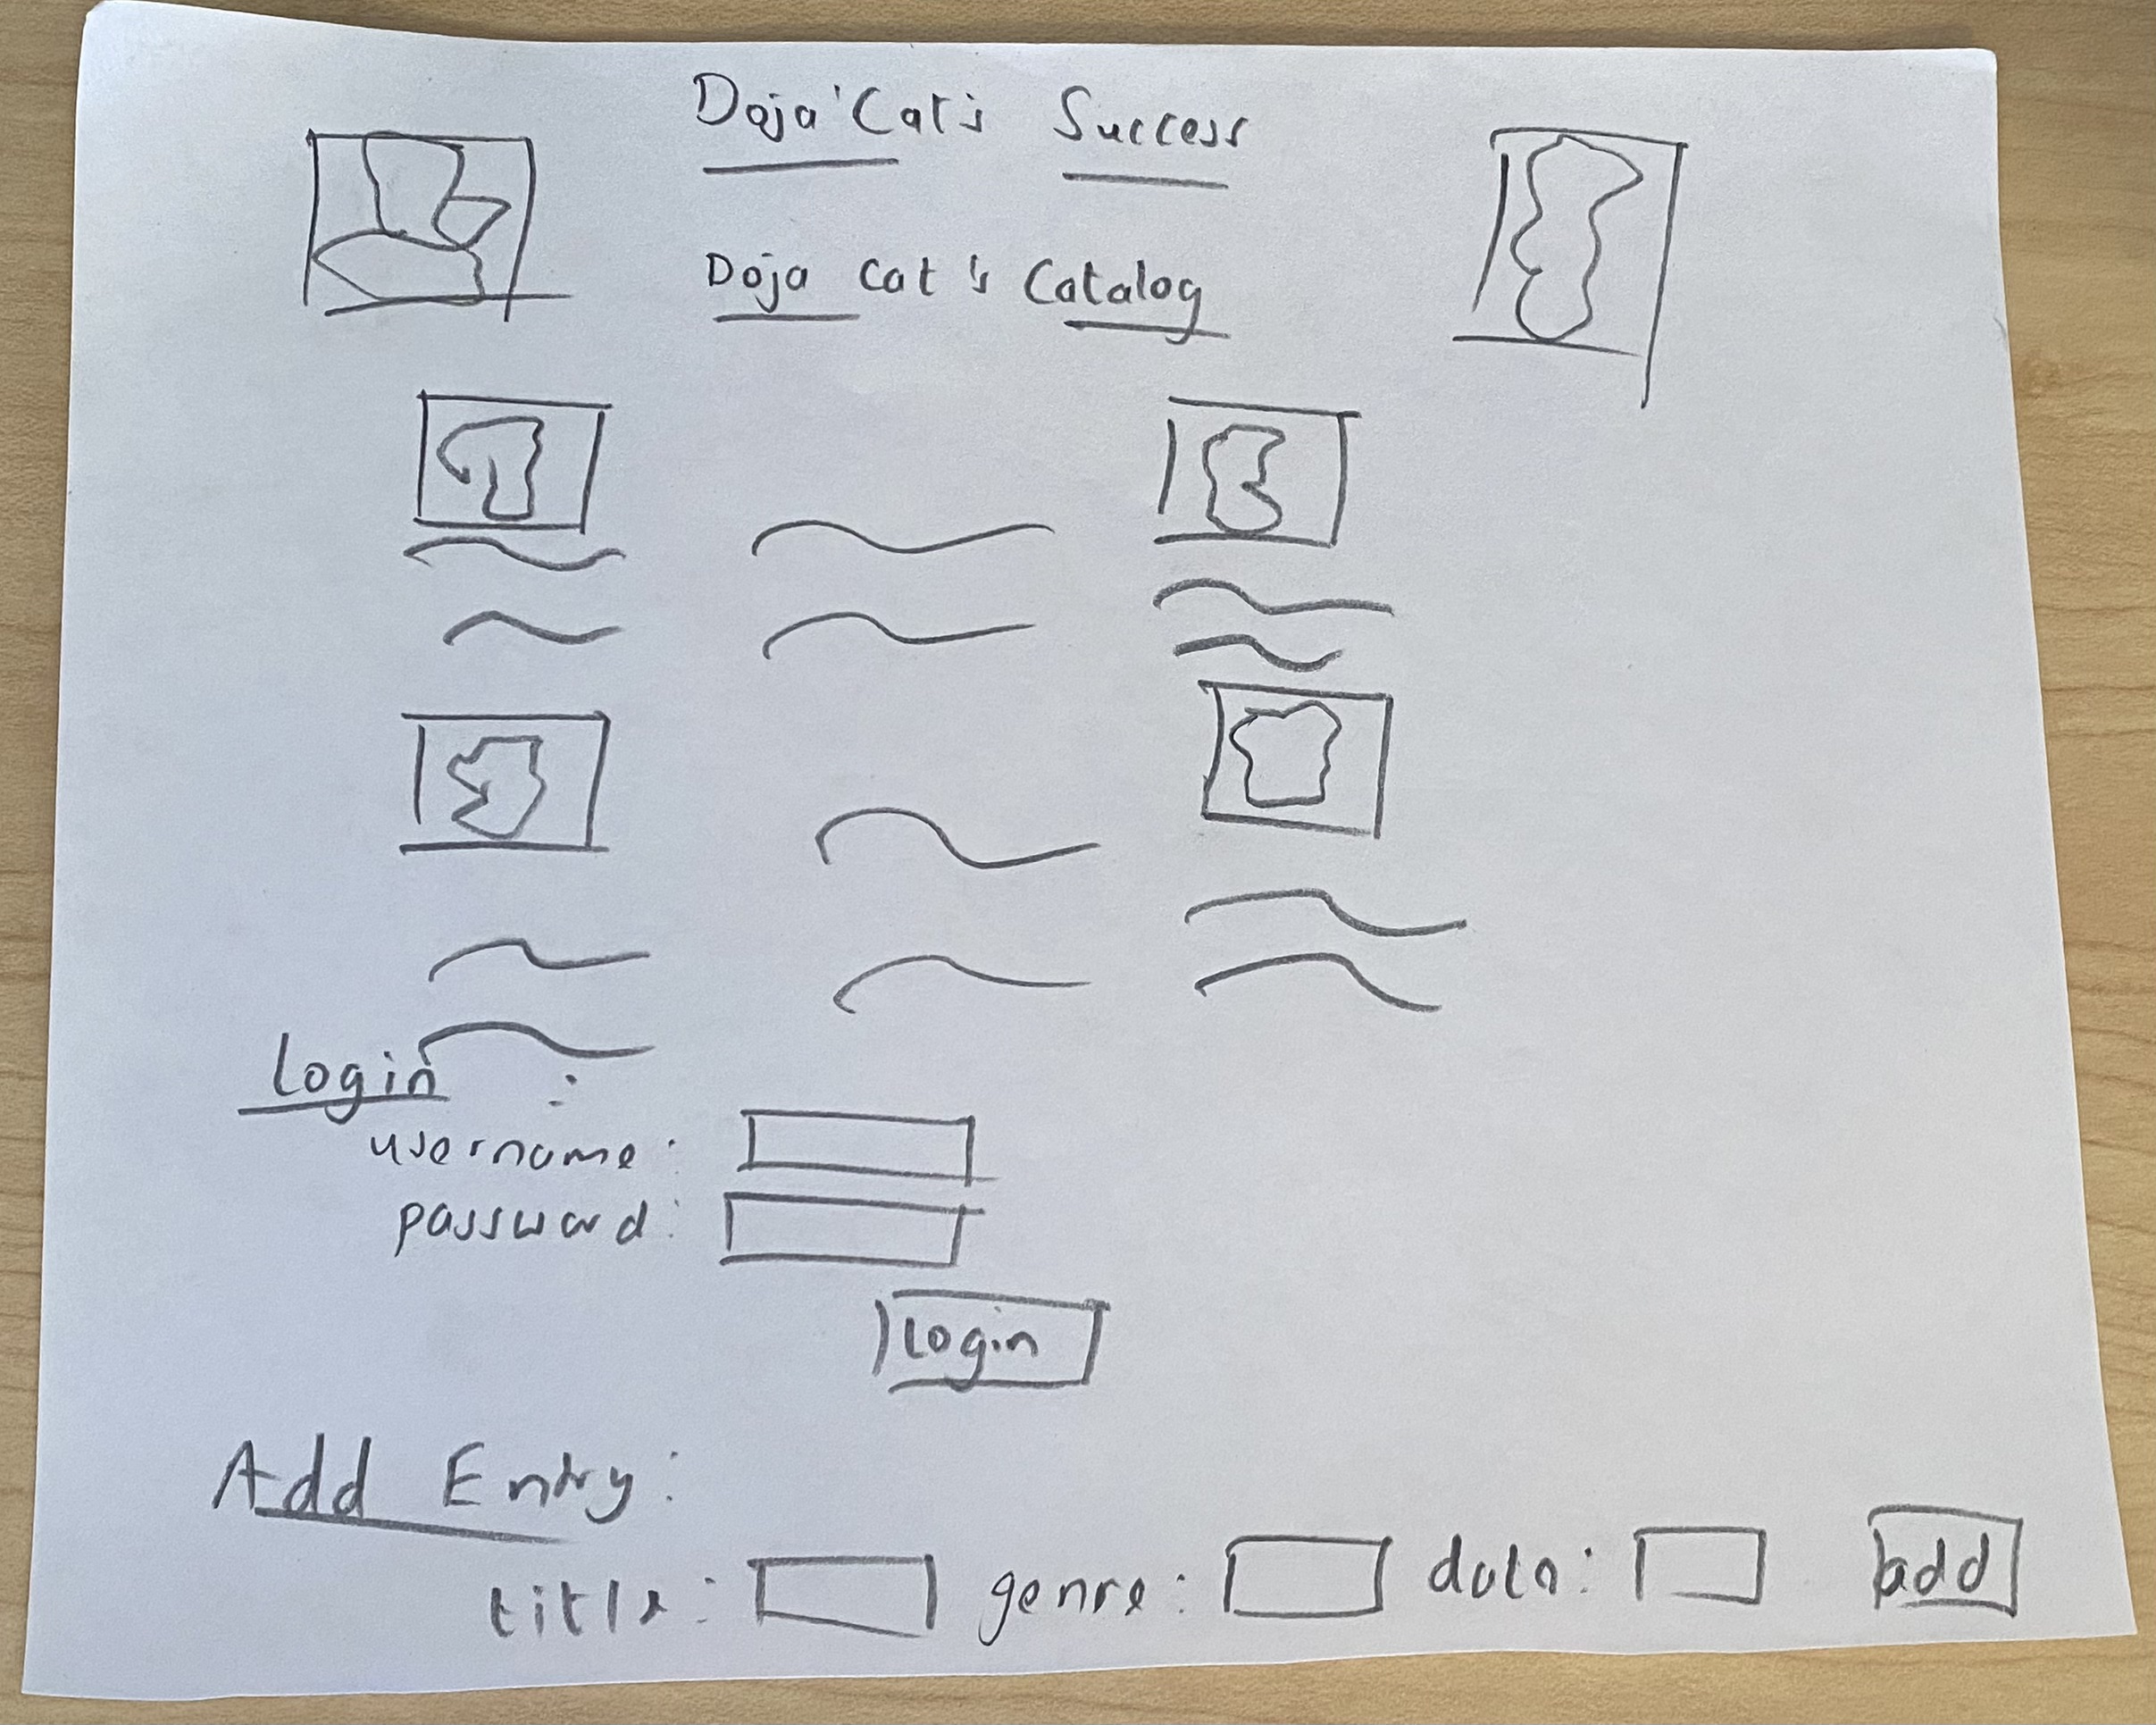 Doja Cat's Success
Doja Cat's Catalog
Login:
username:
password:
Login
Add Entry:
title: genre: date: add